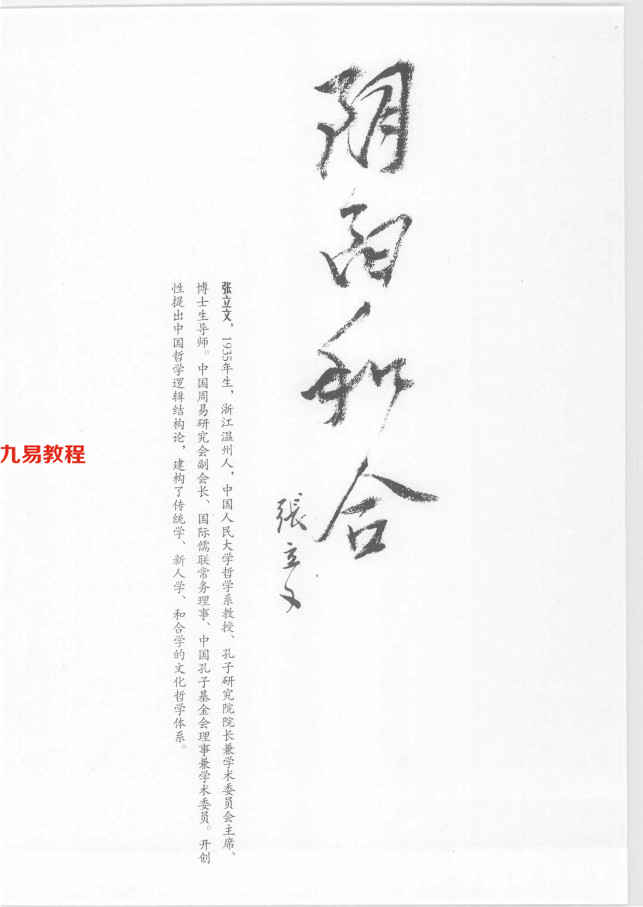 阴阳和合
張立文
张立文，1935年生，浙江温州人，中国人民大学哲学系教授、孔子研究院院长兼学术委员会主席、
博士生导师。中国周易研究会副会长、国际儒联常务理事、中国孔子基金会理事兼学术委员。开创
性提出中国哲学逻辑结构论，建构了传统学、新人学、和合学的文化哲学体系。
九易教程